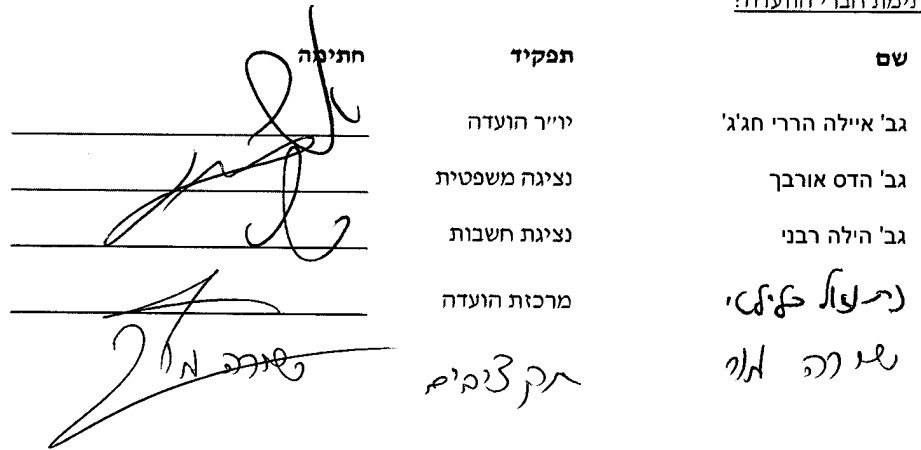 חתימת חברי הוועדה:
שם תפקיד חתימה
גב' איילה הררי חג'ג' יו״ר הועדה
גב' הדס אורבך נציגה משפטית
גב' הילה רבני נציגת חשבות
נתנאל כלילאי מרכזת הועדה
שירה מור תקציבים שירה מור